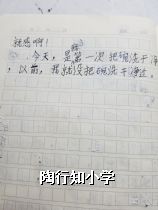 感啊！
今天，是我第一次把碗洗干净
，以前，我就没把碗洗干净过。
陶行知小学